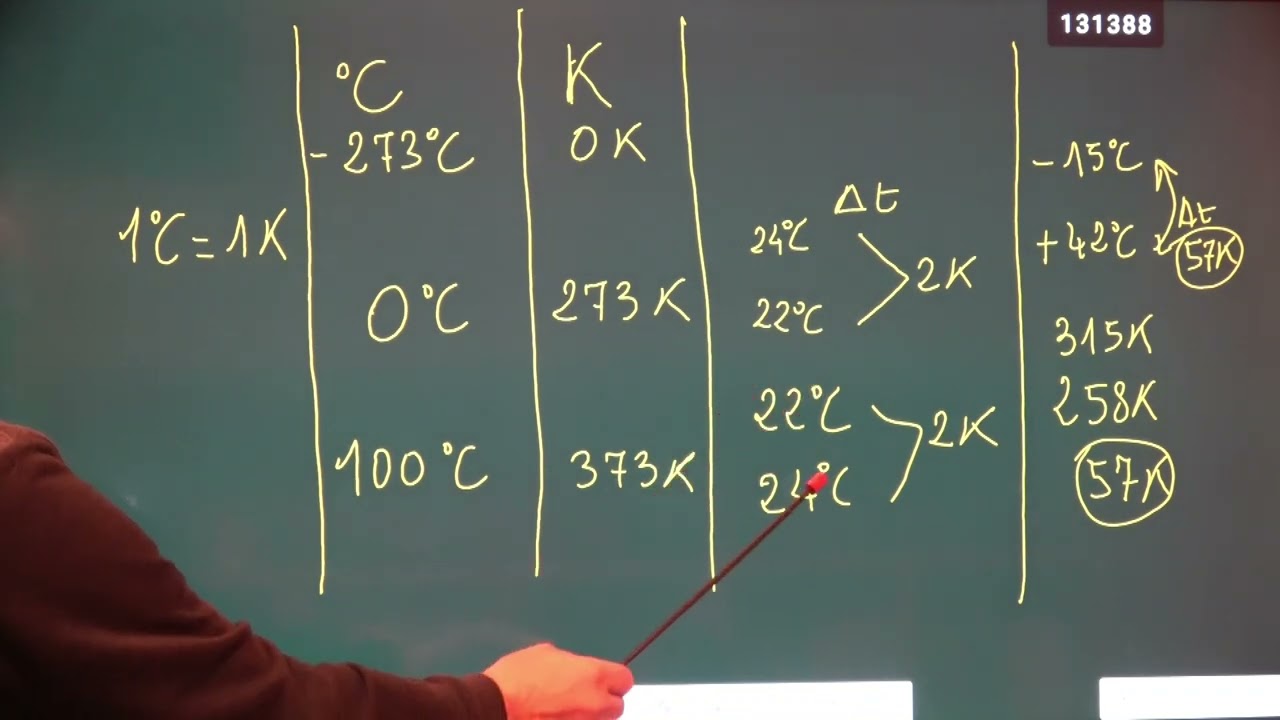 131388
°C K
-273°C 0K
1°C=1K
0°C 273K
100°C 373K
Δt
24°C
22°C
2K
22°C
24°C
2K
-15°C
+42°C
Δt
57K
315K
258K
57K